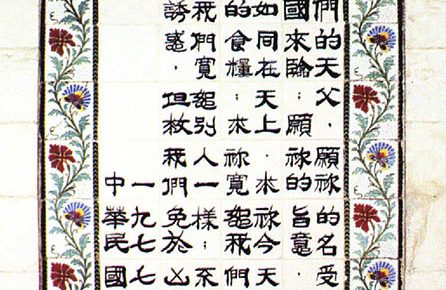 們的天父，願祢的名受
國來臨；願祢的旨意，
如同在天上．求祢今天
的食糧；求祢寬恕我們
我們寬恕別人一樣；不
誘惑．但救我們免於凶
一九七七
中華民國